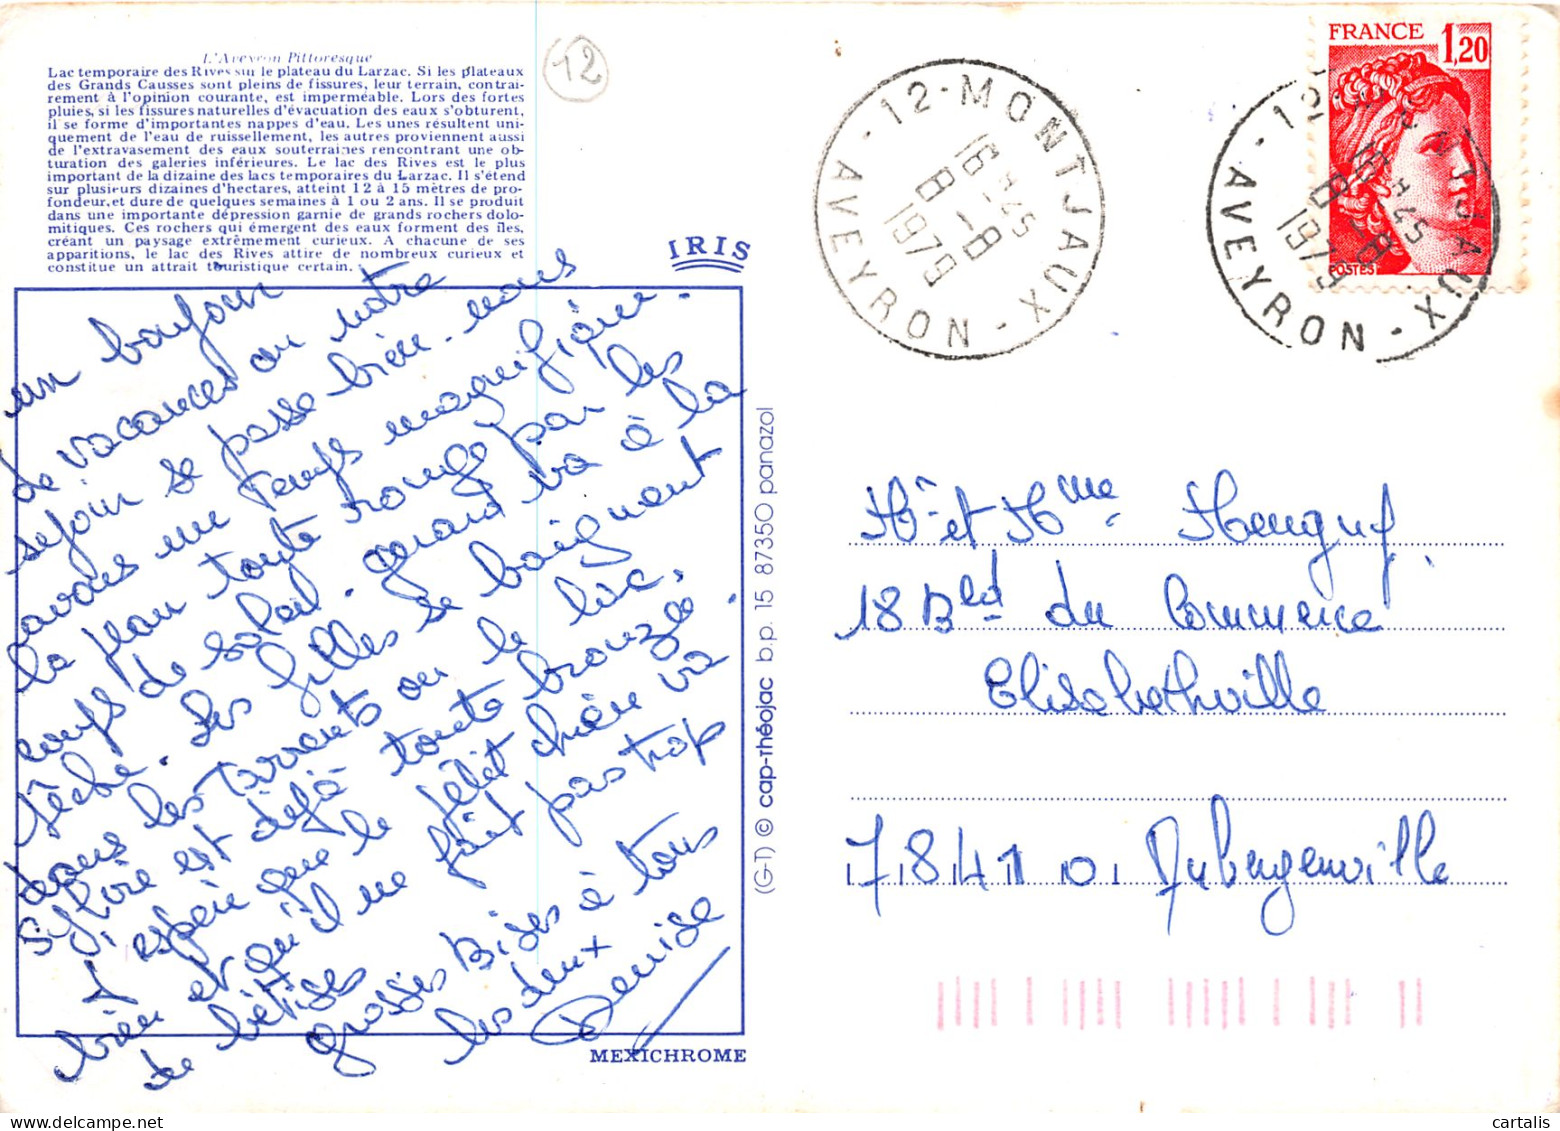 L'Aveyron Pittoresque
Lac temporaire des Rives sur le plateau du Larzac. Si les plateaux
des Grands Causses sont pleins de fissures, leur terrain, contrai-
rement à l'opinion courante, est imperméable. Lors des fortes
pluies, si les fissures naturelles d'évacuation des eaux s'obturent,
il se forme d'importantes nappes d'eau. Les unes résultent uni-
quement de l'eau de ruissellement, les autres proviennent aussi
de l'extravasement des eaux souterraines rencontrant une ob-
turation des galeries inférieures. Le lac des Rives est le plus
important de la dizaine des lacs temporaires du Larzac. Il s'étend
sur plusieurs dizaines d'hectares, atteint 12 à 15 mètres de pro-
fondeur, et dure de quelques semaines à 1 ou 2 ans. Il se produit
dans une importante dépression garnie de grands rochers dolo-
mitiques. Ces rochers qui émergent des eaux forment des îles,
créant un paysage extrêmement curieux. A chacune de ses
apparitions, le lac des Rives attire de nombreux curieux et
constitue un attrait touristique certain.
12
IRIS
un bonjour
de vacances ou notre
sejour se passe bien. nous
avons un temps magnifique.
la peau toute rouge par les
coups de soleil. gerard va à la
pêche. les filles se baignent
dans les torrents ou le lac.
Sylvie est déjà toute bronzée.
J'espère que le petit chien va
bien et qu'il ne fait pas trop
de bêtises
grosses Bises à tous
les deux
Denise
MEXICHROME
(G-T) © cap-théojac b.p. 15 87350 panazol
12-MONTJAUX-AVEYRON
16H45
8-8
1979
FRANCE 1,20
POSTES
12-MONTJAUX-AVEYRON
16H45
8-8
1979
Mr et Mme
18 Bld du Commerce
Elisabethville
78410 Aubergenville
cartalis